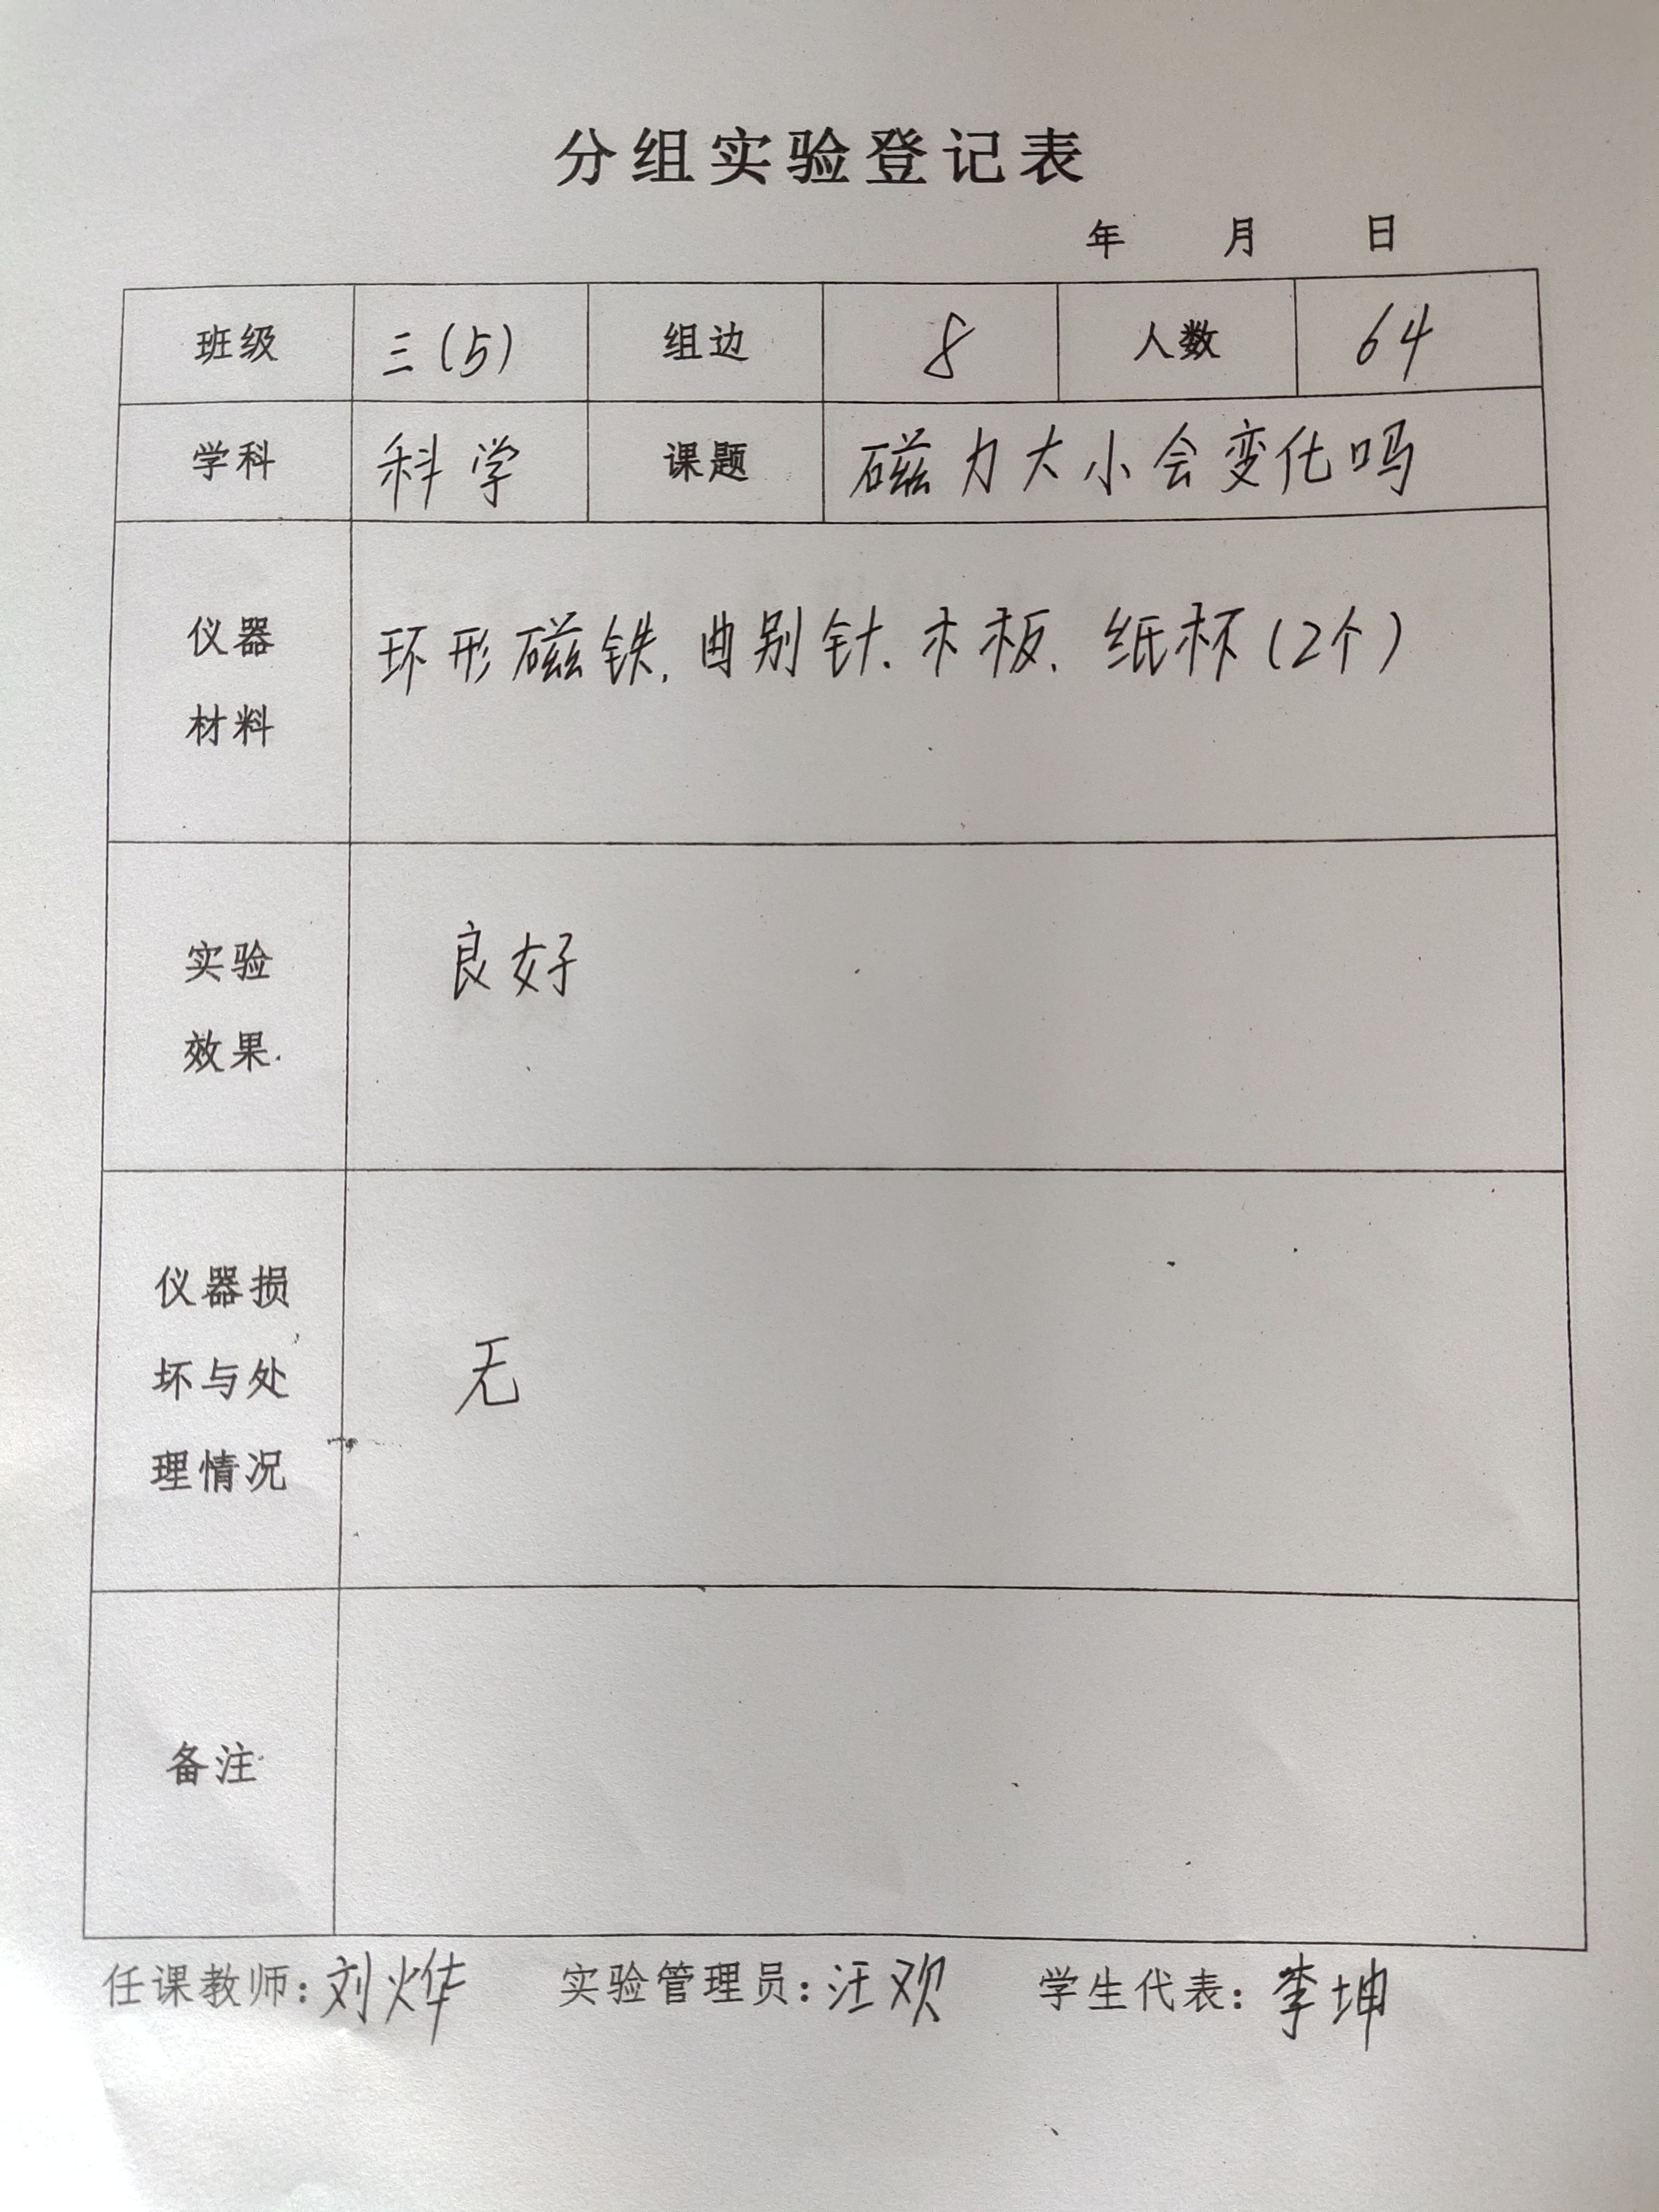 分组实验登记表
年 月 日
班级 三(5) 组边 8 人数 64
学科 科学 课题 磁力大小会变化吗
仪器
材料
环形磁铁.曲别针.木板.纸杯(2个)
实验
效果
良好
仪器损
坏与处
理情况
无
备注
任课教师:刘烨 实验管理员:汪欢 学生代表:李坤